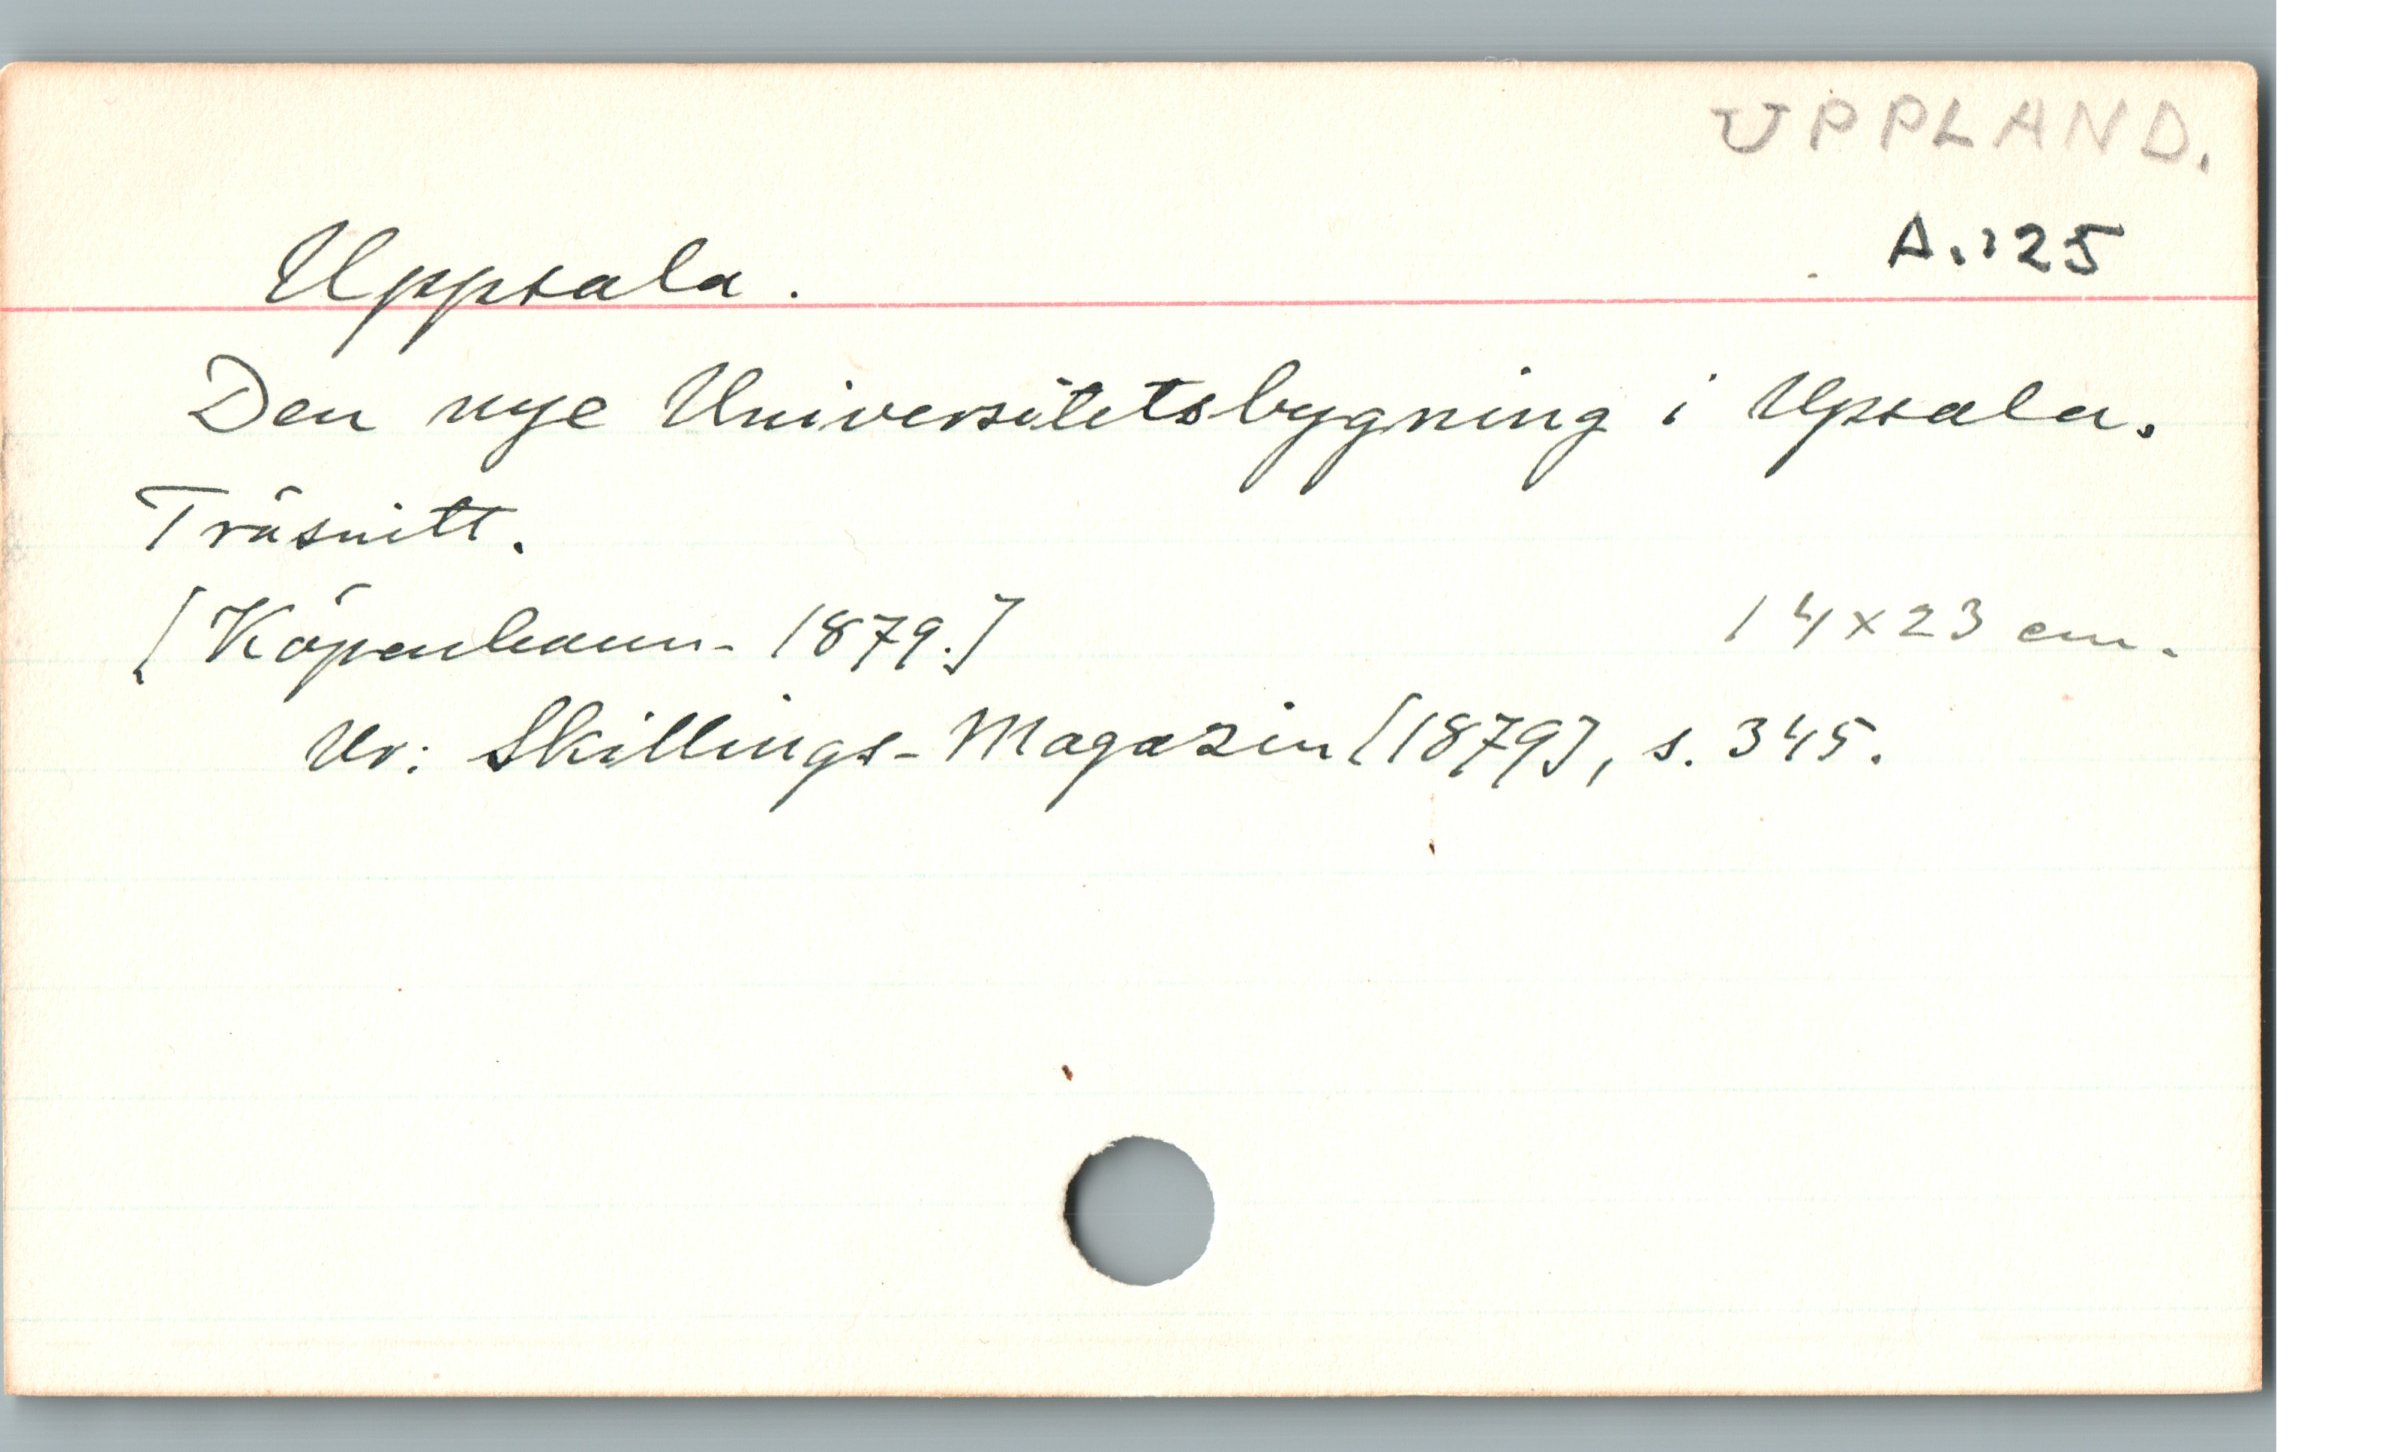 UPPLAND.
A.125
Uppsala.
Den nye Universitetsbygning i Upsala.
Träsnitt.
[Köpenhamn 1879.] 14x23 cm.
Ur: Skillings-Magazin [1879], s. 345.